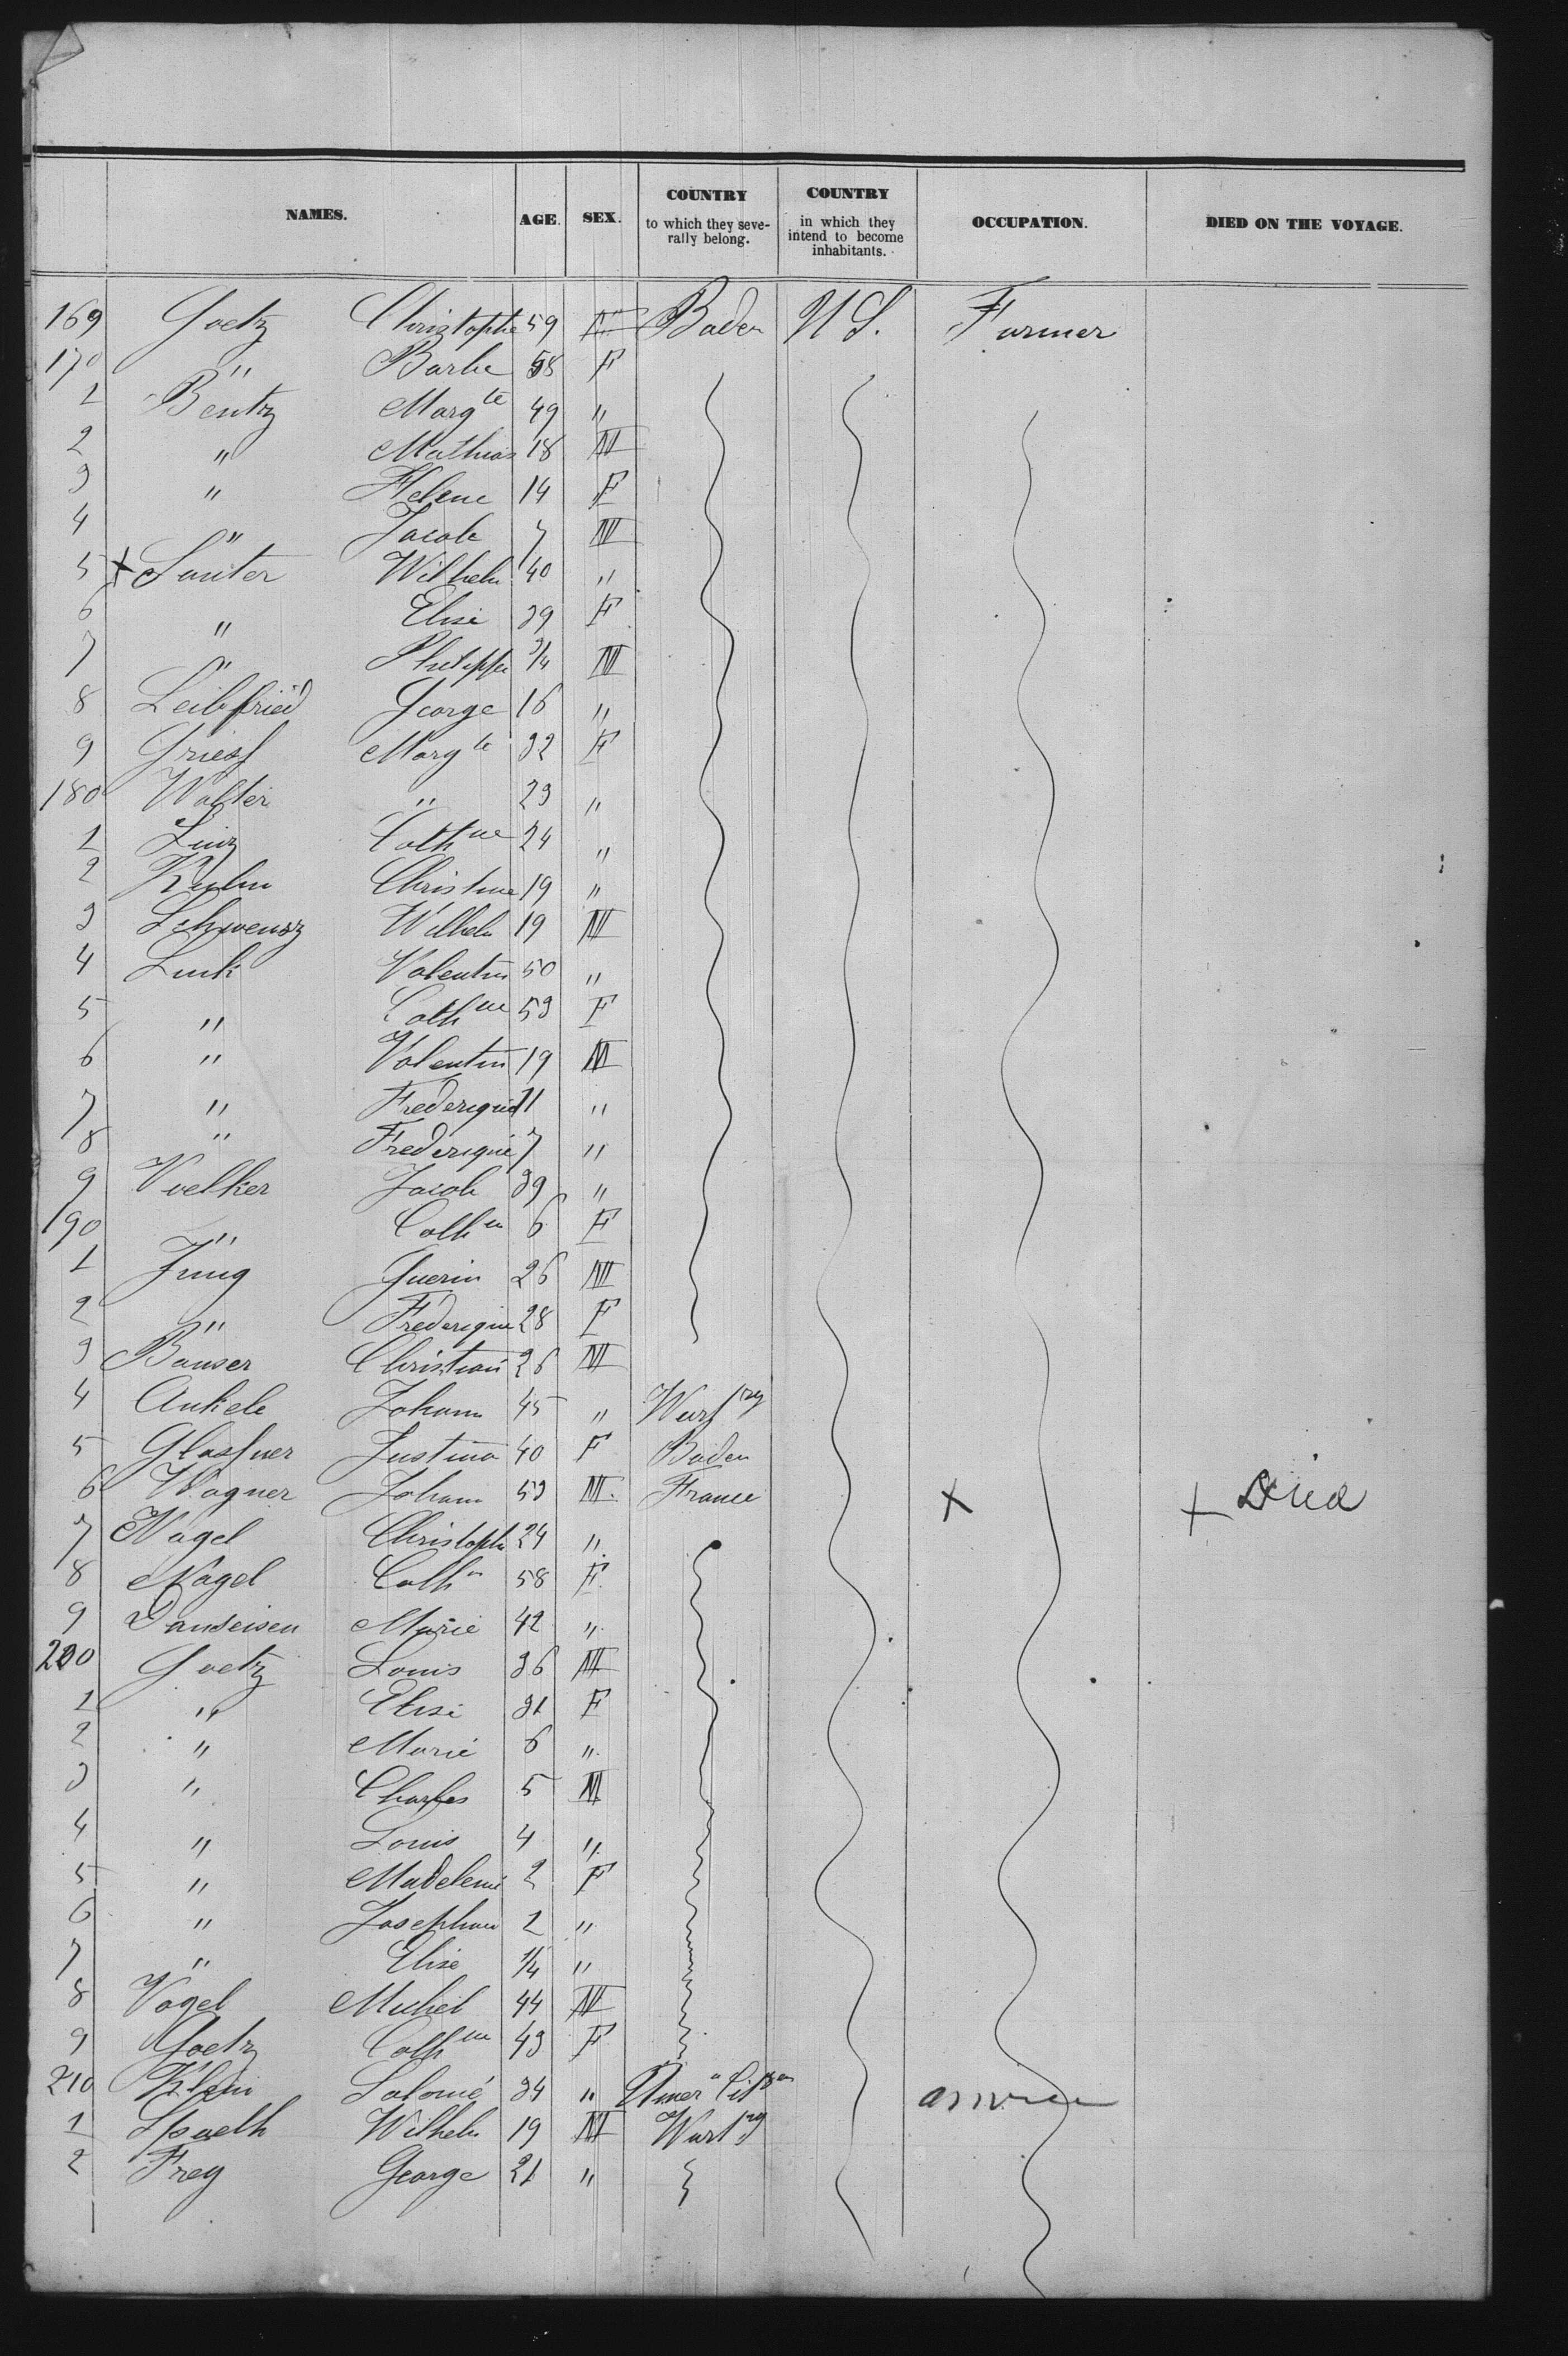 NAMES. AGE. SEX. COUNTRY to which they severally belong. COUNTRY in which they intend to become inhabitants. OCCUPATION. DIED ON THE VOYAGE.
169 Goetz Christophe 59 M Baden U S. Farmer
170 " Barbe 58 F
1 Bentz Margte 49 "
2 " Mathias 18 M
3 " Helene 14 F
4 " Jacob 7 M
5 x Sauter Wilhelm 40 "
6 " Elise 39 F
7 " Philippe 3/4 M
8 Leibfried George 16 "
9 Griess Margte 32 F
180 Walter " 23 "
1 Linz Cathne 24 "
2 Kuhn Christine 19 "
3 Wilhelm 19 M
4 Link Valentin 50 "
5 " Cathne 53 F
6 " Valentin 19 M
7 " Frederique 11 "
8 " Frederique 7 "
9 Voelker Jacob 39 "
190 " Cathn 6 F
1 Jung Guerin 26 M
2 " Frederique 28 F
3 Bauser Christian 26 M
4 Ankele Johann 45 "
5 Glassner Justina 40 F Baden
6 Wagner Johann 53 M. France x + Died
7 Nagel Christophe 24 "
8 Nagel Cathn 58 F.
9 Danseisen Marie 42 "
200 Goetz Louis 36 M
1 " Elise 31 F
2 " Marie 6 "
3 " Charles 5 M
4 " Louis 4 "
5 " Madeleine 2 F
6 " Josephine 2 "
7 " Elise 1/4 "
8 Vogel Michel 44 M
9 Goetz Cathne 43 F
210 Klein Salomé 34 " Amern Citzen
1 Spaeth Wilhelm 19 M Wurtbg
2 Frey George 21 "